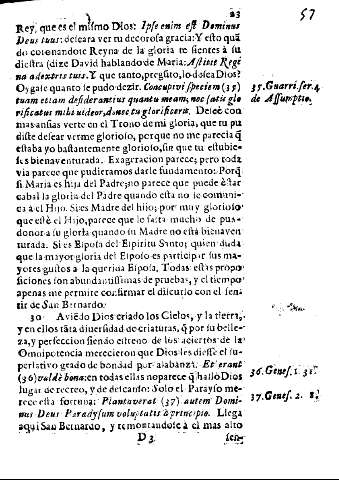 23
57
Rey, que es el mismo Dios: Ipse enim est Dominus
Deus tuus: deseara ver tu decorosa gracia: Y esto quã
do coronandote Reyna de la gloria te sientes à su
diestra (dize David hablando de Maria: Astitit Regi
na à dextris tuis. Y que tanto, pregũto, lo desea Dios?
Oygase quanto se pudo dezir. Concupivi speciem (35)
tuam etiam desiderans in quantu meam, nec satis glo
rificatus mihi videor, donec tu glorificeris. Deseè con
mas ansias verte en el Trono de mi gloria, que tu pu
diste desear verme glorioso, porque no me parecia q̃
estaba yo bastantemente glorioso, sin que tu estubie-
ses bienaventurada. Exageracion parece; pero toda
via parece que pudieramos darle fundamento: Porq̃
si Maria es hija del Padre, no parece que puede estar
cabal la gloria del Padre quando esta no se comuni-
ca à el Hijo. Si es Madre del hijo; por muy glorioso
que estè el Hijo, parece que le falta mucho de pun-
donor a su gloria quando su Madre no està bienaven
turada. Si es Esposa del Espiritu Santo; quien duda
que la mayor gloria del Esposo es participar sus ma-
yores gustos à la querida Esposa. Todas estas propo
siciones son abundantissimas de pruebas, y el tiempo
apenas me permite confirmar el discurso con el sen-
tir de San Bernardo.
35. Guarri. ser. 4.
de Assumptio.
30. Aviẽdo Dios criado los Cielos, y la tierra,
y en ellos tãta diversidad de criaturas, q̃ por su belle-
za, y perfeccion siendo estreno de los aciertos de la
Omnipotencia merecieron que Dios les diesse el su-
perlativo grado de bondad por alabanza: Et erant
(36) valdè bona: en todas ellas no parece q̃ hallò Dios
lugar de recreo, y de descanso: Solo el Parayso me-
rece esta fortuna: Plantaverat (37) autem Domi-
nus Deus Paradysum voluptatis à principio. Llega
aqui San Bernardo, y remontandose à el mas alto
36. Genes. 1.
37. Genes. 2.
D 3